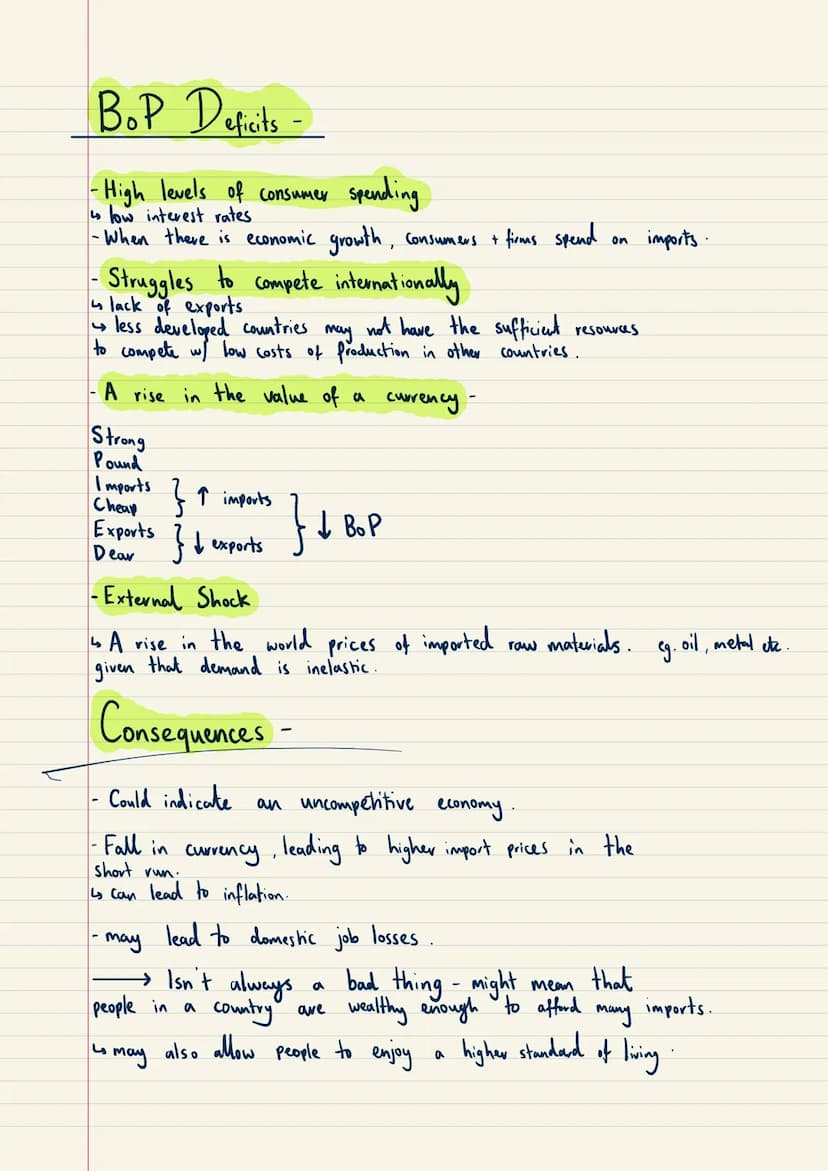 BoP Deficits -
- High levels of consumer spending
↳ low interest rates
- When there is economic growth, consumers + firms spend on imports.
- Struggles to compete internationally
↳ lack of exports
↳ less developed countries may not have the sufficient resources
to compete w/ low costs of production in other countries.
- A rise in the value of a currency -
Strong
Pound
Imports
Cheap } ↑ imports
Exports
Dear } ↓ exports
} ↓ BoP
- External Shock
↳ A rise in the world prices of imported raw materials. eg. oil, metal etc.
given that demand is inelastic.
Consequences -
- Could indicate an uncompetitive economy.
- Fall in currency, leading to higher import prices in the
short run.
↳ can lead to inflation.
- may lead to domestic job losses.
→ Isn't always a bad thing - might mean that
people in a country are wealthy enough to afford many imports.
↳ may also allow people to enjoy a higher standard of living.